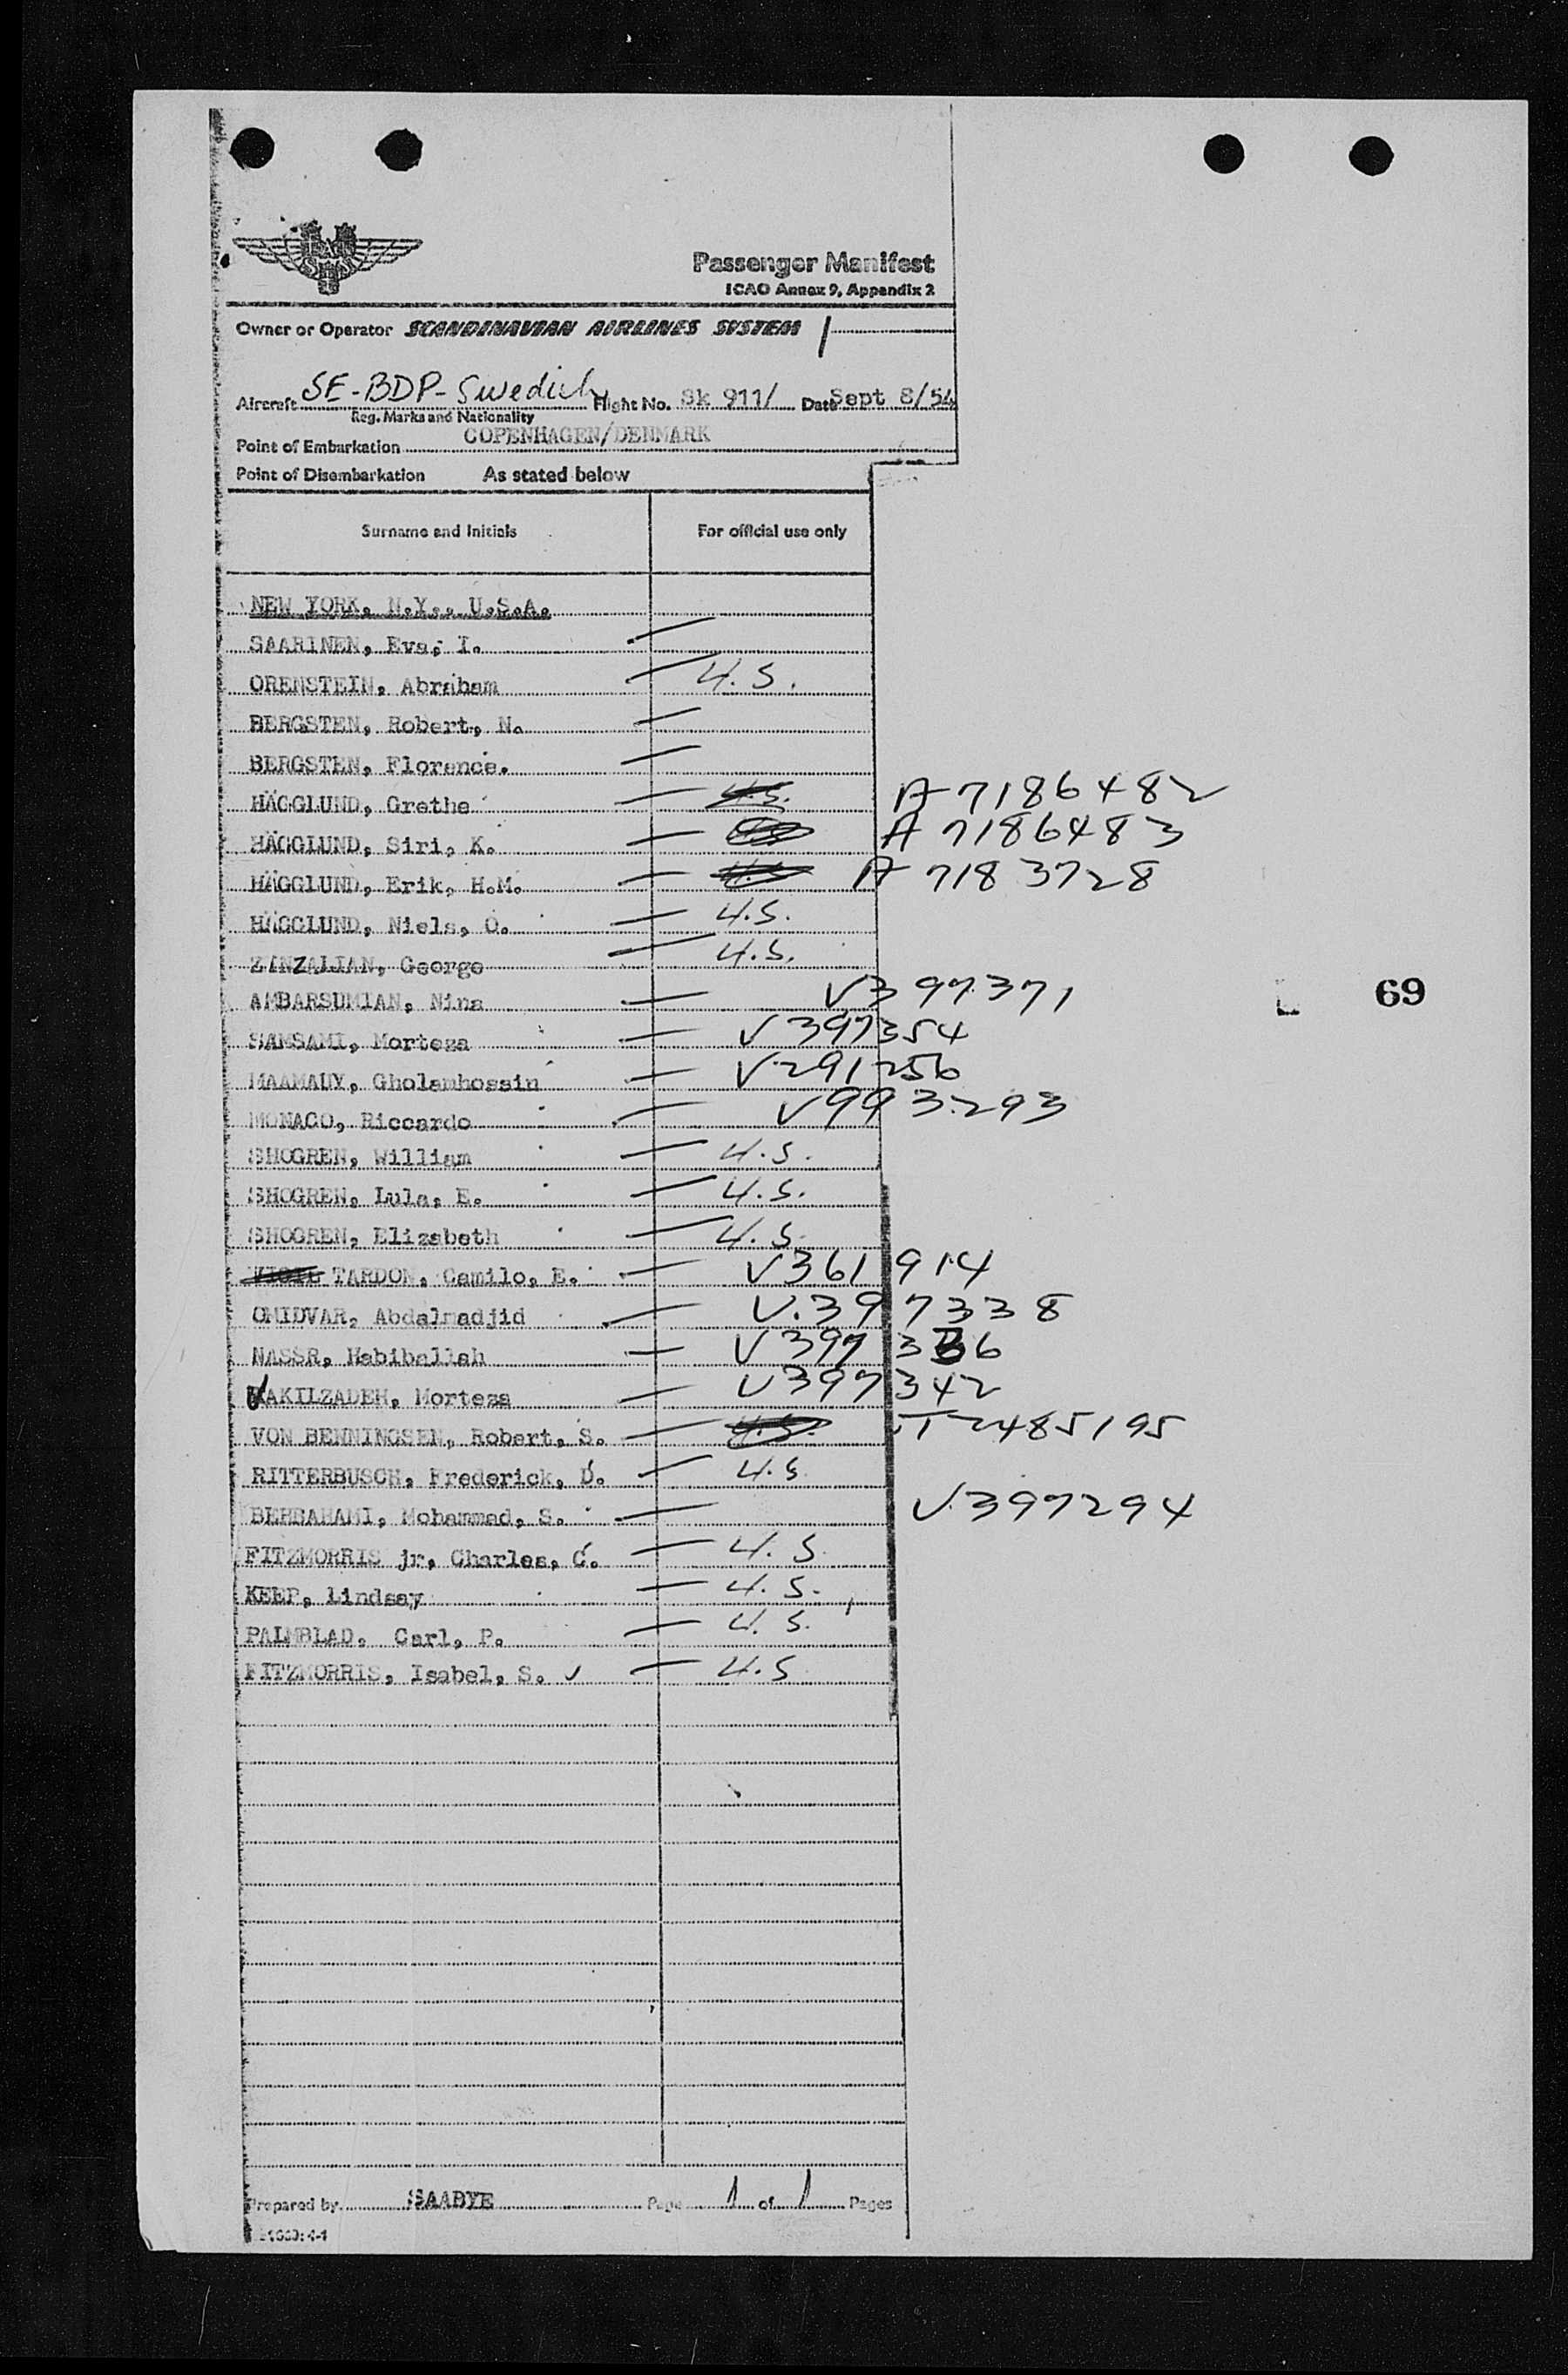 Passenger Manifest
ICAO Annex 9, Appendix 2
Owner or Operator SCANDINAVIAN AIRLINES SYSTEM
Aircraft SE-BDP-Swedish Flight No. Sk 911/ Date Sept 8/54
Reg. Marks and Nationality
Point of Embarkation COPENHAGEN/DENMARK
Point of Disembarkation As stated below
Surname and Initials For official use only
NEW YORK, N.Y., U.S.A.
SAARINEN, Eva, I.
ORENSTEIN, Abraham U.S.
BERGSTEN, Robert, N.
BERGSTEN, Florence.
HÄGGLUND, Grethe U.S. A7186482
HÄGGLUND, Siri, K. A7186483
HÄGGLUND, Erik, H.M. U.S. A7183728
HÄGGLUND, Niels, O. U.S.
ZANZALIAN, George U.S.
AMBARSUMIAN, Nina V397371
SAMSAMI, Morteza V397354
MAAMAUY, Gholamhossin V291256
MONACO, Riccardo V993293
SHOGREN, William U.S.
SHOGREN, Lula, E. U.S.
SHOGREN, Elizabeth U.S.
TARDON, Camilo, E. V361914
OMIDVAR, Abdalmadjid V.397338
NASSR, Habiballah V397336
VAKILZADEH, Morteza V397342
VON BENNINGSEN, Robert, S. U.S. T2485195
RITTERBUSCH, Frederick, D. U.S.
BEHBAHANI, Mohammad, S. V397294
FITZMORRIS jr, Charles, C. U.S.
KEEP, Lindsay U.S.
PALMBLAD, Carl, P. U.S.
FITZMORRIS, Isabel, S. U.S
69
Prepared by SAABYE Page 1 of 1 Pages